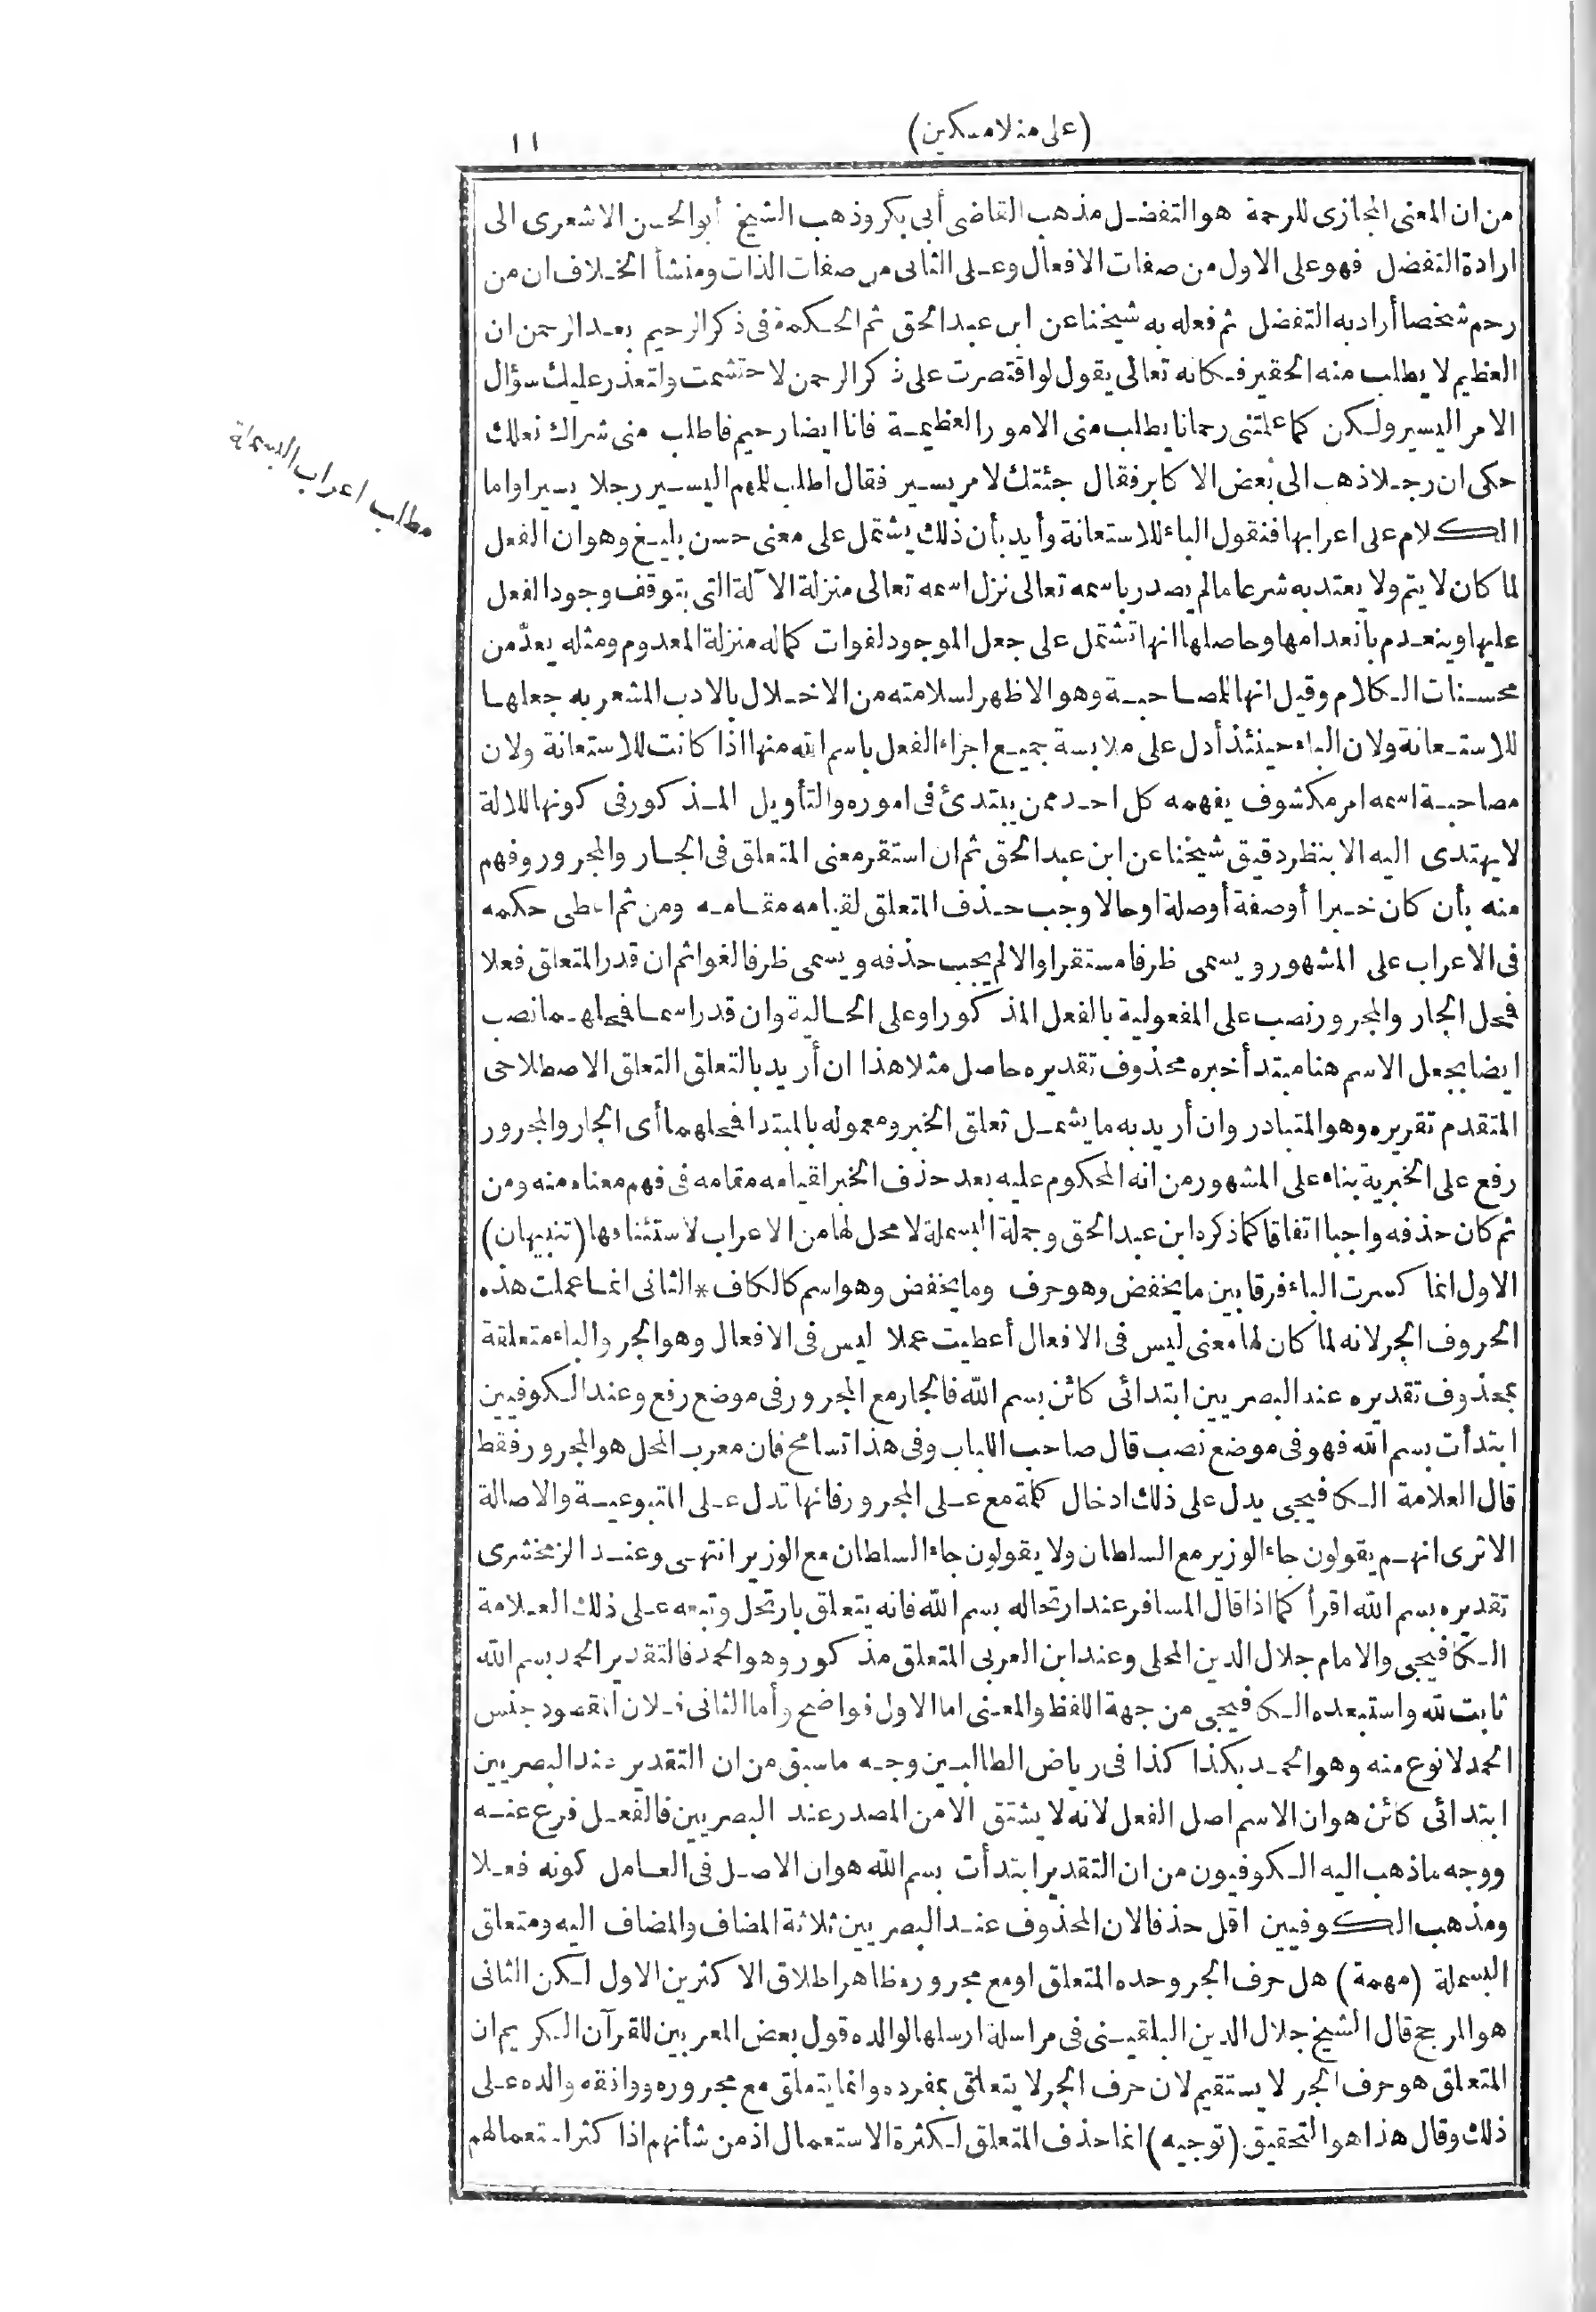 (على منلا مسكين)
١١
من ان المعنى المجازى للرحمة هو التفضل مذهب القاضى أبى بكر وذهب الشيخ أبو الحسن الاشعرى الى
ارادة التفضل فهو على الاول من صفات الافعال وعلى الثانى من صفات الذات ومنشأ الخلاف ان من
رحم شخصا أراد به التفضل ثم فعله به شيخنا عن ابن عبد الحق ثم الحكمة فى ذكر الرحيم بعد الرحمن ان
العظيم لا يطلب منه الحقير فكانه تعالى يقول لو اقتصرت على ذكر الرحمن لاحتشمت ولتعذر عليك سؤال
الامر اليسير ولكن كما علمتنى رحمانا يطلب منى الامور العظيمة فانا ايضا رحيم فاطلب منى شراك نعلك
حكى ان رجلا ذهب الى بعض الاكابر فقال جئتك لامر يسير فقال اطلب للمهم اليسير رجلا يسيرا واما
الكلام على اعرابها فنقول الباء للاستعانة وأيد بأن ذلك يشتمل على معنى حسن بليغ وهو ان الفعل
لما كان لا يتم ولا يعتد به شرعا مالم يصدر باسمه تعالى نزل اسمه تعالى منزلة الآلة التى يتوقف وجود الفعل
عليها وينعدم بانعدامها وحاصلها انها تشتمل على جعل الموجود لفوات كماله منزلة المعدوم ومثله يعدّ من
محسنات الكلام وقيل انها للمصاحبة وهو الاظهر لسلامته من الاخلال بالادب المشعر به جعلها
للاستعانة ولان الباء حينئذ أدل على ملابسة جميع اجزاء الفعل باسم الله منها اذا كانت للاستعانة ولان
مصاحبة اسمه امر مكشوف يفهمه كل احد ممن يبتدئ فى اموره والتأويل المذكور فى كونها للالة
لا يهتدى اليه الا بنظر دقيق شيخنا عن ابن عبد الحق ثم ان استقر معنى المتعلق فى الجار والمجرور وفهم
منه بأن كان خبرا أو صفة أو صلة او حالا وجب حذف المتعلق لقيامه مقامه ومن ثم اعطى حكمه
فى الاعراب على المشهور ويسمى ظرفا مستقرا والا لم يجب حذفه ويسمى ظرفا لغوا ثم ان قدر المتعلق فعلا
فمحل الجار والمجرور نصب على المفعولية بالفعل المذكور او على الحالية وان قدر اسما فمحلهما نصب
ايضا بجعل الاسم هنا مبتدأ خبره محذوف تقديره حاصل مثلا هذا ان أريد بالتعلق التعلق الاصطلاحى
المتقدم تقريره وهو المتبادر وان أريد به ما يشمل تعلق الخبر ومعموله بالمبتدا فمحلهما أى الجار والمجرور
رفع على الخبرية بناء على المشهور من انه المحكوم عليه بعد حذف الخبر لقيامه مقامه فى فهم معناه منه ومن
ثم كان حذفه واجبا اتفاقا كما ذكره ابن عبد الحق وجملة البسملة لا محل لها من الاعراب لاستئنافها (تنبيهان)
الاول انما كسرت الباء فرقا بين ما يخفض وهو حرف وما يخفض وهو اسم كالكاف * الثانى انما عملت هذه
الحروف الجر لانه لما كان لها معنى ليس فى الافعال أعطيت عملا ليس فى الافعال وهو الجر والباء متعلقة
بمحذوف تقديره عند البصريين ابتدائى كائن بسم الله فالجار مع المجرور فى موضع رفع وعند الكوفيين
ابتدأت بسم الله فهو فى موضع نصب قال صاحب اللباب وفى هذا تسامح فان معرب المحل هو المجرور فقط
قال العلامة الكافيجى يدل على ذلك ادخال كلمة مع على المجرور فانها تدل على المتبوعية والاصالة
الا ترى انهم يقولون جاء الوزير مع السلطان ولا يقولون جاء السلطان مع الوزير انتهى وعند الزمخشرى
تقديره بسم الله اقرأ كما اذا قال المسافر عند ارتحاله بسم الله فانه يتعلق بارتحل وتبعه على ذلك العلامة
الكافيجى والامام جلال الدين المحلى وعند ابن العربى المتعلق مذكور وهو الحمد فالتقدير الحمد بسم الله
ثابت لله واستبعده الكافيجى من جهة اللفظ والمعنى اما الاول فواضح وأما الثانى فلان المقصود جنس
الحمد لا نوع منه وهو الحمد بكذا كذا فى رياض الطالبين وجه ما سبق من ان التقدير عند البصريين
ابتدائى كائن هو ان الاسم اصل الفعل لانه لا يشتق الا من المصدر عند البصريين فالفعل فرع عنه
ووجه ما ذهب اليه الكوفيون من ان التقدير ابتدأت بسم الله هو ان الاصل فى العامل كونه فعلا
ومذهب الكوفيين اقل حذفا لان المحذوف عند البصريين ثلاثة المضاف والمضاف اليه ومتعلق
البسملة (مهمة) هل حرف الجر وحده المتعلق او مع مجروره ظاهر اطلاق الاكثرين الاول لكن الثانى
هو المرجح قال الشيخ جلال الدين البلقينى فى مراسلة ارسلها لوالده قول بعض المعربين للقرآن الكريم ان
المتعلق هو حرف الجر لا يستقيم لان حرف الجر لا يتعلق بمفرده وانما يتعلق مع مجروره ووافقه والده على
ذلك وقال هذا هو التحقيق (توجيه) انما حذف المتعلق لكثرة الاستعمال اذ من شأنهم اذا كثر استعمالهم
مطلب اعراب البسملة